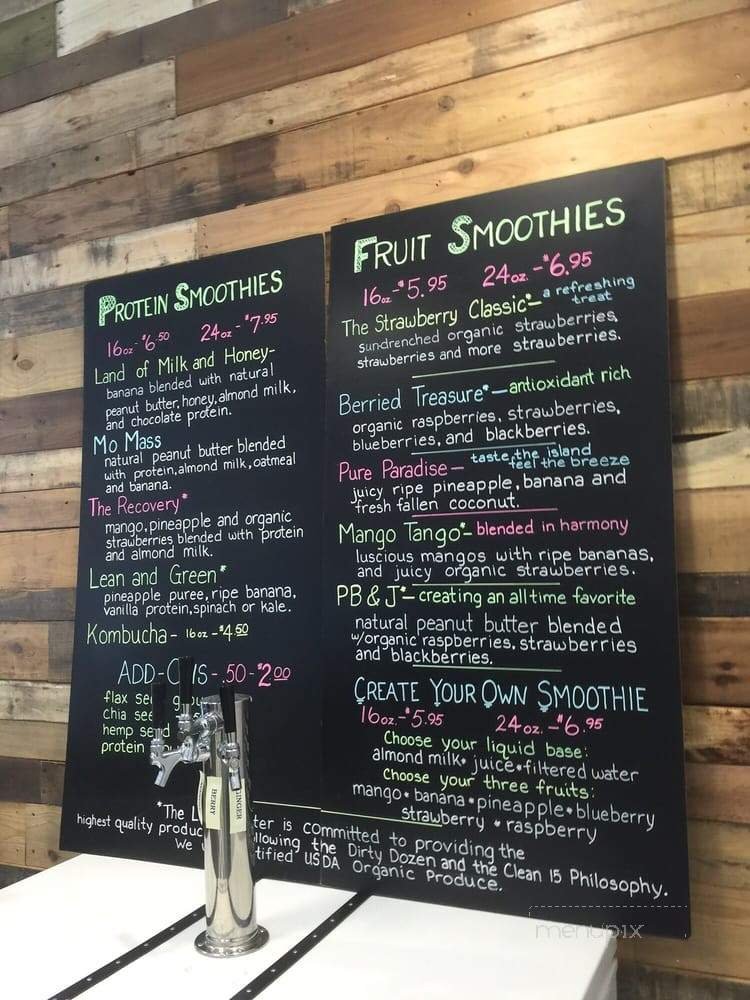 Protein Smoothies
16oz-$6.50 24oz-$7.95
Land of Milk and Honey-
banana blended with natural
peanut butter, honey, almond milk,
and chocolate protein.
Mo Mass
natural peanut butter blended
with protein, almond milk, oatmeal
and banana.
The Recovery*
mango, pineapple and organic
strawberries blended with protein
and almond milk.
Lean and Green*
pineapple puree, ripe banana,
vanilla protein, spinach or kale.
Kombucha- 16oz-$4.50
ADD- -.50-$2.00
flax
chia
hemp
protein
Fruit Smoothies
16oz-$5.95 24oz.-$6.95
The Strawberry Classic*- a refreshing
treat
sun-drenched organic strawberries,
strawberries and more strawberries.
Berried Treasure*-antioxidant rich
organic raspberries, strawberries,
blueberries, and blackberries.
Pure Paradise- taste the island
feel the breeze
juicy ripe pineapple, banana and
fresh fallen coconut.
Mango Tango*-blended in harmony
luscious mangos with ripe bananas,
and juicy organic strawberries.
PB & J*-creating an all time favorite
natural peanut butter blended
w/organic raspberries, strawberries
and blackberries.
Create Your Own Smoothie
16oz.-$5.95 24oz.-$6.95
Choose your liquid base:
almond milk•juice•filtered water
Choose your three fruits:
mango•banana•pineapple•blueberry
strawberry•raspberry
*The is committed to providing the
highest quality following the Dirty Dozen and the Clean 15 Philosophy.
We USDA Organic Produce.
BERRY
GINGER
menupix